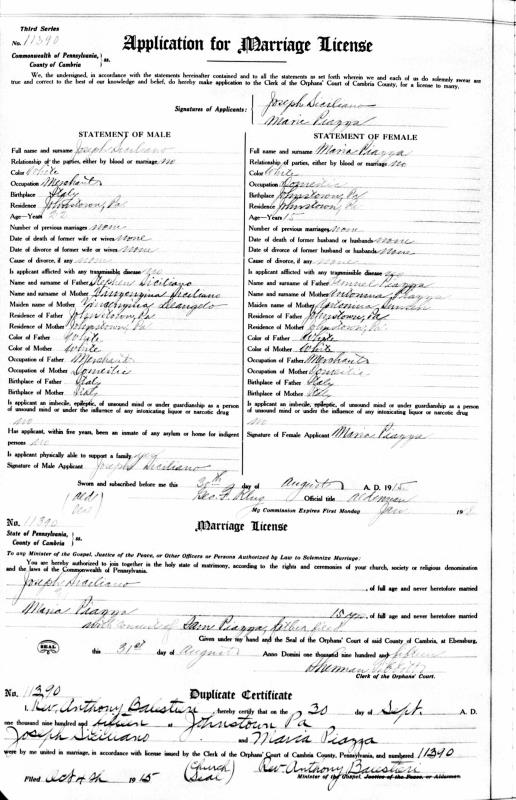 Third Series
No. 11390
Application for Marriage License
Commonwealth of Pennsylvania,
County of Cambria } ss.
We, the undersigned, in accordance with the statements hereinafter contained and to all the statements as set forth wherein we and each of us do solemnly swear are
true and correct to the best of our knowledge and belief, do hereby make application to the Clerk of the Orphans' Court of Cambria County, for a license to marry,
Signatures of Applicants: Joseph Siciliano
Maria Piazza
STATEMENT OF MALE
Full name and surname Joseph Siciliano
Relationship of the parties, either by blood or marriage no
Color White
Occupation Merchant
Birthplace Italy
Residence Johnstown, Pa
Age—Years 22
Number of previous marriages none
Date of death of former wife or wives none
Date of divorce of former wife or wives none
Cause of divorce, if any none
Is applicant afflicted with any transmissible disease no
Name and surname of Father Stephen Siciliano
Name and surname of Mother Siciliano
Maiden name of Mother
Residence of Father Johnstown, Pa
Residence of Mother Johnstown, Pa
Color of Father White
Color of Mother White
Occupation of Father Merchant
Occupation of Mother Domestic
Birthplace of Father Italy
Birthplace of Mother Italy
Is applicant an imbecile, epileptic, of unsound mind or under guardianship as a person
of unsound mind or under the influence of any intoxicating liquor or narcotic drug
no
Has applicant, within five years, been an inmate of any asylum or home for indigent
persons no
Is applicant physically able to support a family yes
Signature of Male Applicant Joseph Siciliano
STATEMENT OF FEMALE
Full name and surname Maria Piazza
Relationship of parties, either by blood or marriage no
Color White
Occupation Domestic
Birthplace Johnstown, Pa
Residence Johnstown, Pa
Age—Years 15
Number of previous marriages none
Date of death of former husband or husbands none
Date of divorce of former husband or husbands none
Cause of divorce, if any none
Is applicant afflicted with any transmissible disease no
Name and surname of Father Piazza
Name and surname of Mother Antonina Piazza
Maiden name of Mother Antonina
Residence of Father Johnstown, Pa
Residence of Mother Johnstown, Pa
Color of Father White
Color of Mother White
Occupation of Father Merchant
Occupation of Mother Domestic
Birthplace of Father Italy
Birthplace of Mother Italy
Is applicant an imbecile, epileptic, of unsound mind or under guardianship as a person
of unsound mind or under the influence of any intoxicating liquor or narcotic drug
no
Signature of Female Applicant Maria Piazza
Sworn and subscribed before me this 30th day of August A. D. 1915
Geo. F. Official title Alderman
My Commission Expires First Monday Jan 191
No. 11390
Marriage License
State of Pennsylvania,
County of Cambria } ss.
To any Minister of the Gospel, Justice of the Peace, or Other Officers or Persons Authorized by Law to Solemnize Marriage:
You are hereby authorized to join together in the holy state of matrimony, according to the rights and ceremonies of your church, society or religious denomination
and the laws of the Commonwealth of Pennsylvania.
Joseph Siciliano , of full age and never heretofore married
Maria Piazza 15 yrs , of full age and never heretofore married
with consent of Sam Piazza, father
Given under my hand and the Seal of the Orphans' Court of said County of Cambria, at Ebensburg,
SEAL
this 31st day of August Anno Domini one thousand nine hundred and fifteen
Clerk of the Orphans' Court.
No. 11390
Duplicate Certificate
I, Rev. Anthony , hereby certify that on the 30 day of Sept. A. D.
one thousand nine hundred and fifteen at Johnstown Pa
Joseph Siciliano and Maria Piazza
were by me united in marriage, in accordance with license issued by the Clerk of the Orphans' Court of Cambria County, Pennsylvania, and numbered 11390
(Church Seal) Rev. Anthony
Filed Oct 4th 1915 Minister of the Gospel, Justice of the Peace, or Alderman.